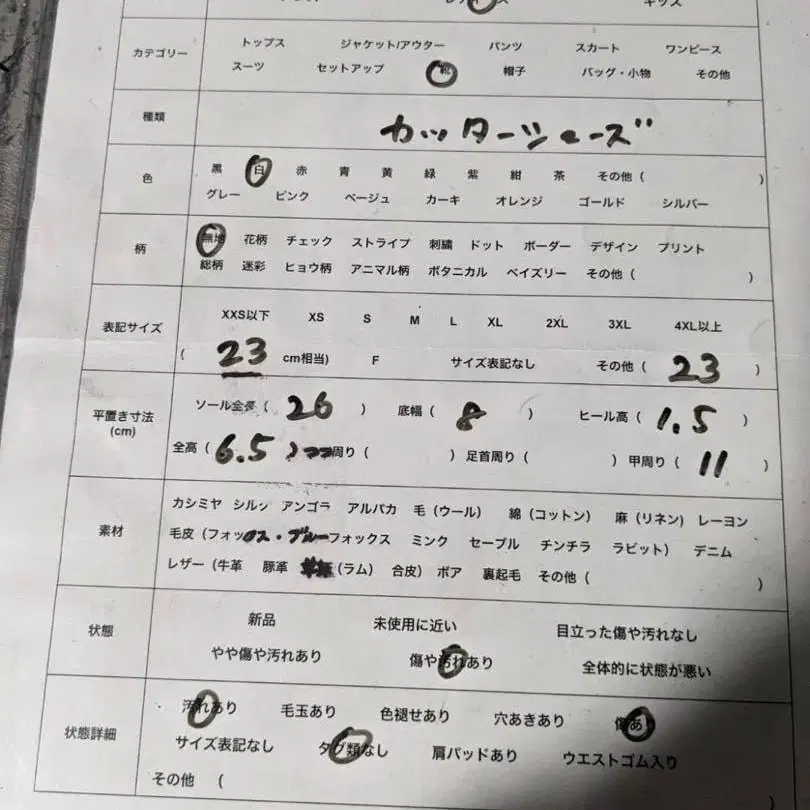 カテゴリー トップス ジャケット/アウター パンツ スカート ワンピース
スーツ セットアップ 靴 帽子 バッグ・小物 その他
種類 カッターシューズ
色 黒 白 赤 青 黄 緑 紫 紺 茶 その他（ ）
グレー ピンク ベージュ カーキ オレンジ ゴールド シルバー
柄 無地 花柄 チェック ストライプ 刺繍 ドット ボーダー デザイン プリント
総柄 迷彩 ヒョウ柄 アニマル柄 ボタニカル ペイズリー その他（ ）
表記サイズ XXS以下 XS S M L XL 2XL 3XL 4XL以上
（ 23 cm相当) F サイズ表記なし その他（ 23 ）
平置き寸法 (cm) ソール全長（ 26 ） 底幅（ 8 ） ヒール高（ 1.5 ）
全高（ 6.5 ） 周り（ ）足首周り（ ）甲周り（ 11 ）
素材 カシミヤ シルク アンゴラ アルパカ 毛（ウール） 綿（コットン） 麻（リネン） レーヨン
毛皮（フォックス・ブルーフォックス ミンク セーブル チンチラ ラビット） デニム
レザー（牛革 豚革 （ラム） 合皮） ボア 裏起毛 その他（ ）
状態 新品 未使用に近い 目立った傷や汚れなし
やや傷や汚れあり 傷や汚れあり 全体的に状態が悪い
状態詳細 汚れあり 毛玉あり 色褪せあり 穴あきあり 傷あり
サイズ表記なし タグ類なし 肩パッドあり ウエストゴム入り
その他 （ ）